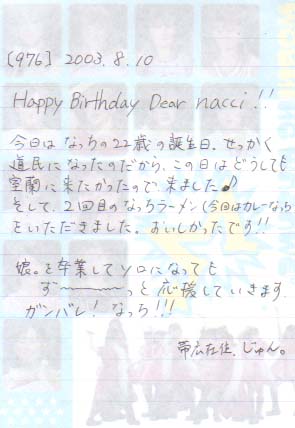 [976] 2003.8.10
Happy Birthday Dear nacci!!
今日はなっちの22歳の誕生日。せっかく
道民になったのだから、この日はどうしても
室蘭に来たかったので、来ました♪
そして、2回目のなっちラーメン(今回はカレーなっち)
をいただきました。おいしかったです!!
娘。を卒業してソロになっても
ず〜〜〜〜っと応援していきます
ガンバレ!なっち!!!
帯広在住、じゅん。